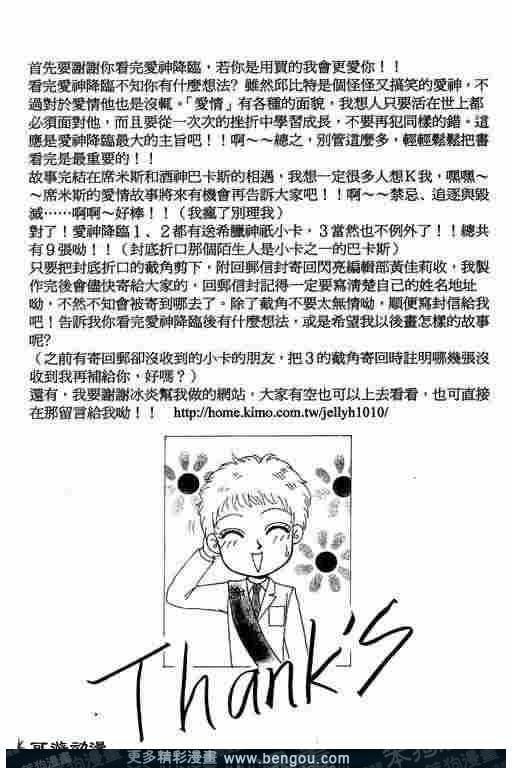 首先要謝謝你看完愛神降臨，若你是用買的我會更愛你！！
看完愛神降臨不知你有什麼想法？雖然邱比特是個怪怪又搞笑的愛神，不
過對於愛情他也是沒輒。「愛情」有各種的面貌，我想人只要活在世上都
必須面對他，而且要從一次次的挫折中學習成長，不要再犯同樣的錯。這
應是愛神降臨最大的主旨吧！！啊～～總之，別管這麼多，輕輕鬆鬆把書
看完是最重要的！！
故事完結在席米斯和酒神巴卡斯的相遇，我想一定很多人想K我，嘿嘿～
～席米斯的愛情故事將來有機會再告訴大家吧！！啊～～禁忌、追逐與毀
滅……啊啊～好棒！！（我瘋了別理我）
對了！愛神降臨１、２都有送希臘神祇小卡，３當然也不例外了！！總共
有９張呦！！（封底折口那個陌生人是小卡之一的巴卡斯）
只要把封底折口的截角剪下，附回郵信封寄回閃亮編輯部黃佳莉收，我製
作完後會儘快寄給大家的，回郵信封記得一定要寫清楚自己的姓名地址
呦，不然不知會被寄到哪去了。除了截角不要太無情呦，順便寫封信給我
吧！告訴我你看完愛神降臨後有什麼想法，或是希望我以後畫怎樣的故事
呢？
（之前有寄回郵卻沒收到的小卡的朋友，把３的截角寄回時註明哪幾張沒
收到我再補給你，好嗎？）
還有，我要謝謝冰炎幫我做的網站，大家有空也可以上去看看，也可直接
在那留言給我呦！！ http://home.kimo.com.tw/jellyh1010/
Thank's
更多精彩漫畫 www.bengou.com